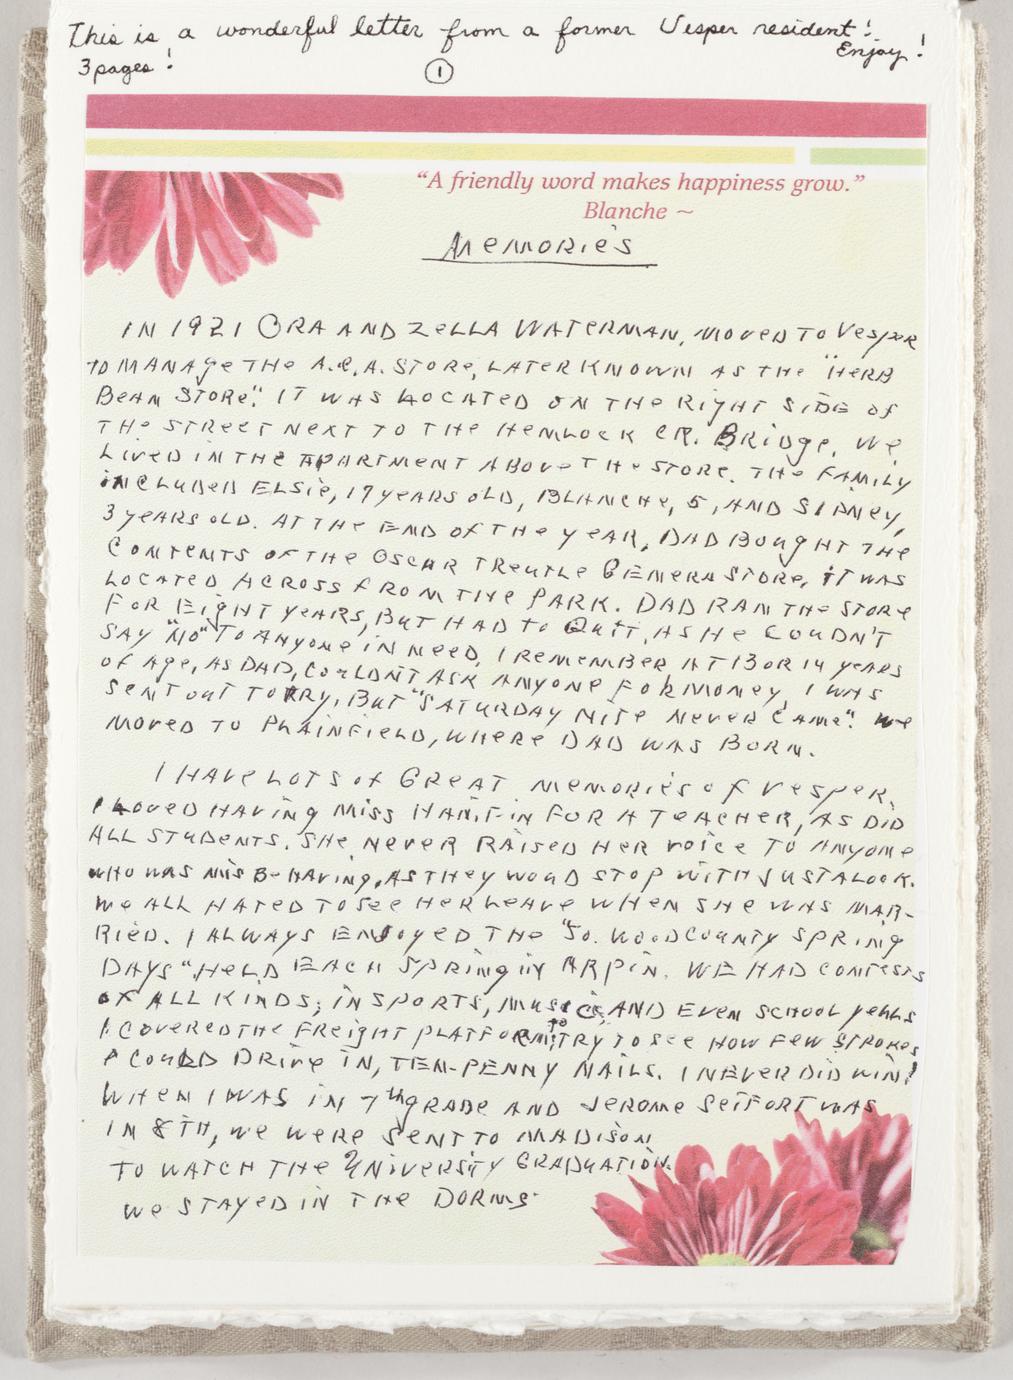 This is a wonderful letter from a former Vesper resident!
Enjoy!
3 pages!
1
"A friendly word makes happiness grow."
Blanche ~
Memories
IN 1921 ORA AND ZELLA WATERMAN, MOVED TO Vesper
TO MANAGE THE A.R.A. STORE, LATER KNOWN AS THE "HERB
BEAN STORE". IT WAS LOCATED ON THE RIGHT SIDE OF
THE STREET NEXT TO THE HEMLOCK CR. BRIDGE. WE
LIVED IN THE APARTMENT ABOVE THE STORE. THE FAMILY
INCLUDED ELSIE, 17 YEARS OLD, BLANCHE, 5, AND SIDNEY,
3 YEARS OLD. AT THE END OF THE YEAR, DAD BOUGHT THE
CONTENTS OF THE OSCAR TREUTLE GENERA STORE, IT WAS
LOCATED ACROSS FROM THE PARK. DAD RAN THE STORE
FOR EIGHT YEARS, BUT HAD TO QUIT, AS HE COUDN'T
SAY "NO" TO ANYONE IN NEED. I REMEMBER AT 13 OR 14 YEARS
OF AGE, AS DAD, COULDN'T ASK ANYONE FOR MONEY, I WAS
SENT OUT TO TRY, BUT "SATURDAY NITE NEVER CAME". WE
MOVED TO PLAINFIELD, WHERE DAD WAS BORN.
I HAVE LOTS OF GREAT MEMORIES OF VESPER.
I LOVED HAVING MISS HANIFIN FOR A TEACHER, AS DID
ALL STUDENTS. SHE NEVER RAISED HER VOICE TO ANYONE
WHO WAS MISBEHAVING, AS THEY WOUD STOP WITH JUST A LOOK.
WE ALL HATED TO SEE HER LEAVE WHEN SHE WAS MAR-
RIED. I ALWAYS ENJOYED THE "SO. WOOD COUNTY SPRING
DAYS" HELD EACH SPRING IN ARPIN. WE HAD CONTESTS
OF ALL KINDS; IN SPORTS, MUSIC, AND EVEN SCHOOL YELLS
I COVERED THE FREIGHT PLATFORM, TO TRY TO SEE HOW FEW STROKES
I COULD DRIVE IN, TEN-PENNY NAILS. I NEVER DID WIN!
WHEN I WAS IN 7th GRADE AND JEROME SEIFORT WAS
IN 8TH, WE WERE SENT TO MADISON
TO WATCH THE UNIVERSITY GRADUATION.
WE STAYED IN THE DORMS.